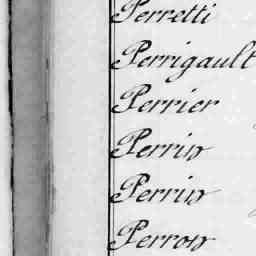 Perretti
Perrigault
Perrier
Perrin
Perrin
Perron